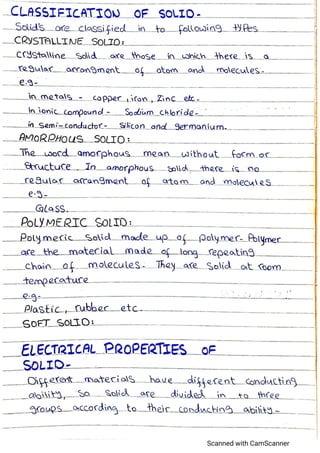 CLASSIFICATION OF SOLID-
Solids are classified in to following types
CRYSTALLINE SOLID:
Crystalline Solid are those in which there is a
regular arrangment of atom and molecules.
e.g-
in metals - copper, iron, Zinc etc.
In ionic compound - Sodium chloride-
in Semi-conductor- Silicon and germanium.
AMORPHOUS SOLID:
The word amorphous mean without form or
Structure. In amorphous Solid there is no
regular arrangment of atom and molecules
e.g-
Glass.
POLYMERIC SOLID:
Polymeric Solid made up of polymer- Polymer
are the material made of long repeating
chain of molecules. They are Solid at room
temperature
e.g-
Plastic, rubber etc.
SOFT SOLID:
ELECTRICAL PROPERTIES OF
SOLID-
Different materials have different conducting
ability, So Solid are divided in to three
groups according to their conducting ability-
Scanned with CamScanner